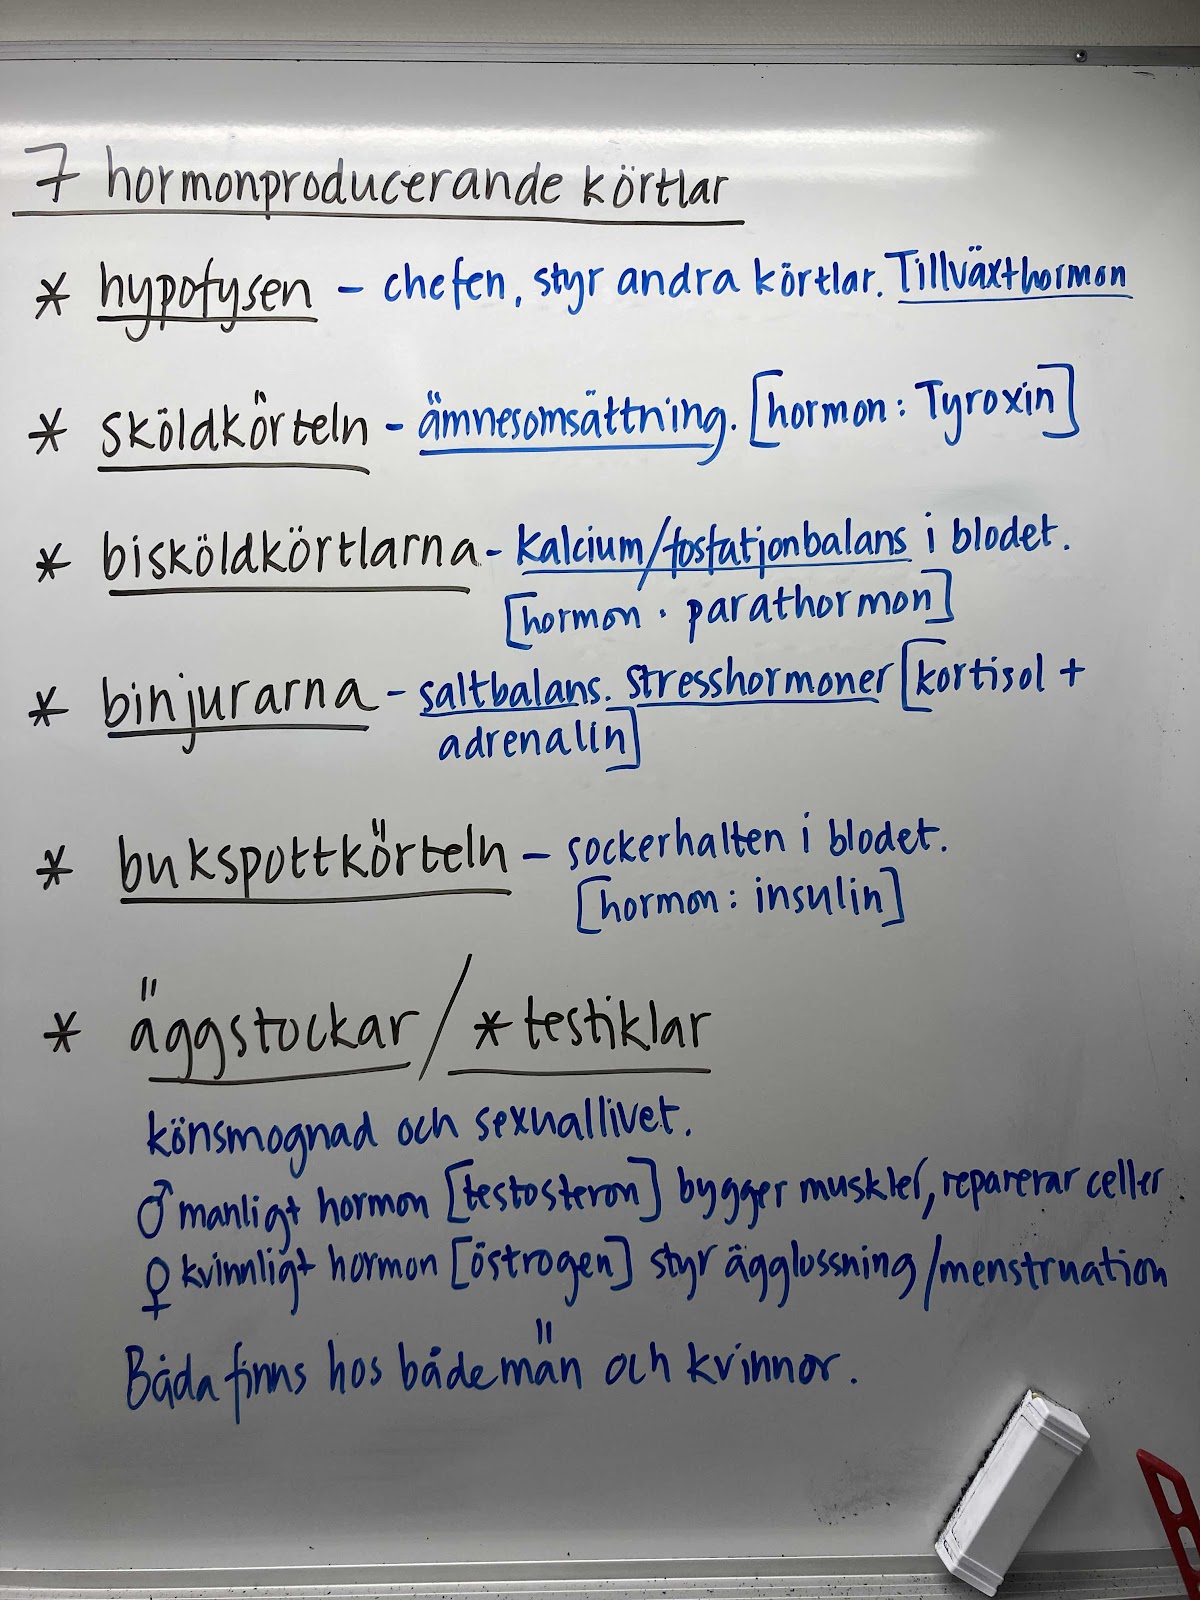 7 hormonproducerande körtlar
* hypofysen – chefen, styr andra körtlar. Tillväxthormon
* sköldkörteln – ämnesomsättning. [hormon: Tyroxin]
* bisköldkörtlarna – kalcium/fosfatjonbalans i blodet.
[hormon · parathormon]
* binjurarna – saltbalans. stresshormoner [kortisol +
adrenalin]
* bukspottkörteln – sockerhalten i blodet.
[hormon: insulin]
* äggstockar / * testiklar
könsmognad och sexuallivet.
♂ manligt hormon [testosteron] bygger muskler, reparerar celler
♀ kvinnligt hormon [östrogen] styr ägglossning/menstruation
Båda finns hos både män och kvinnor.